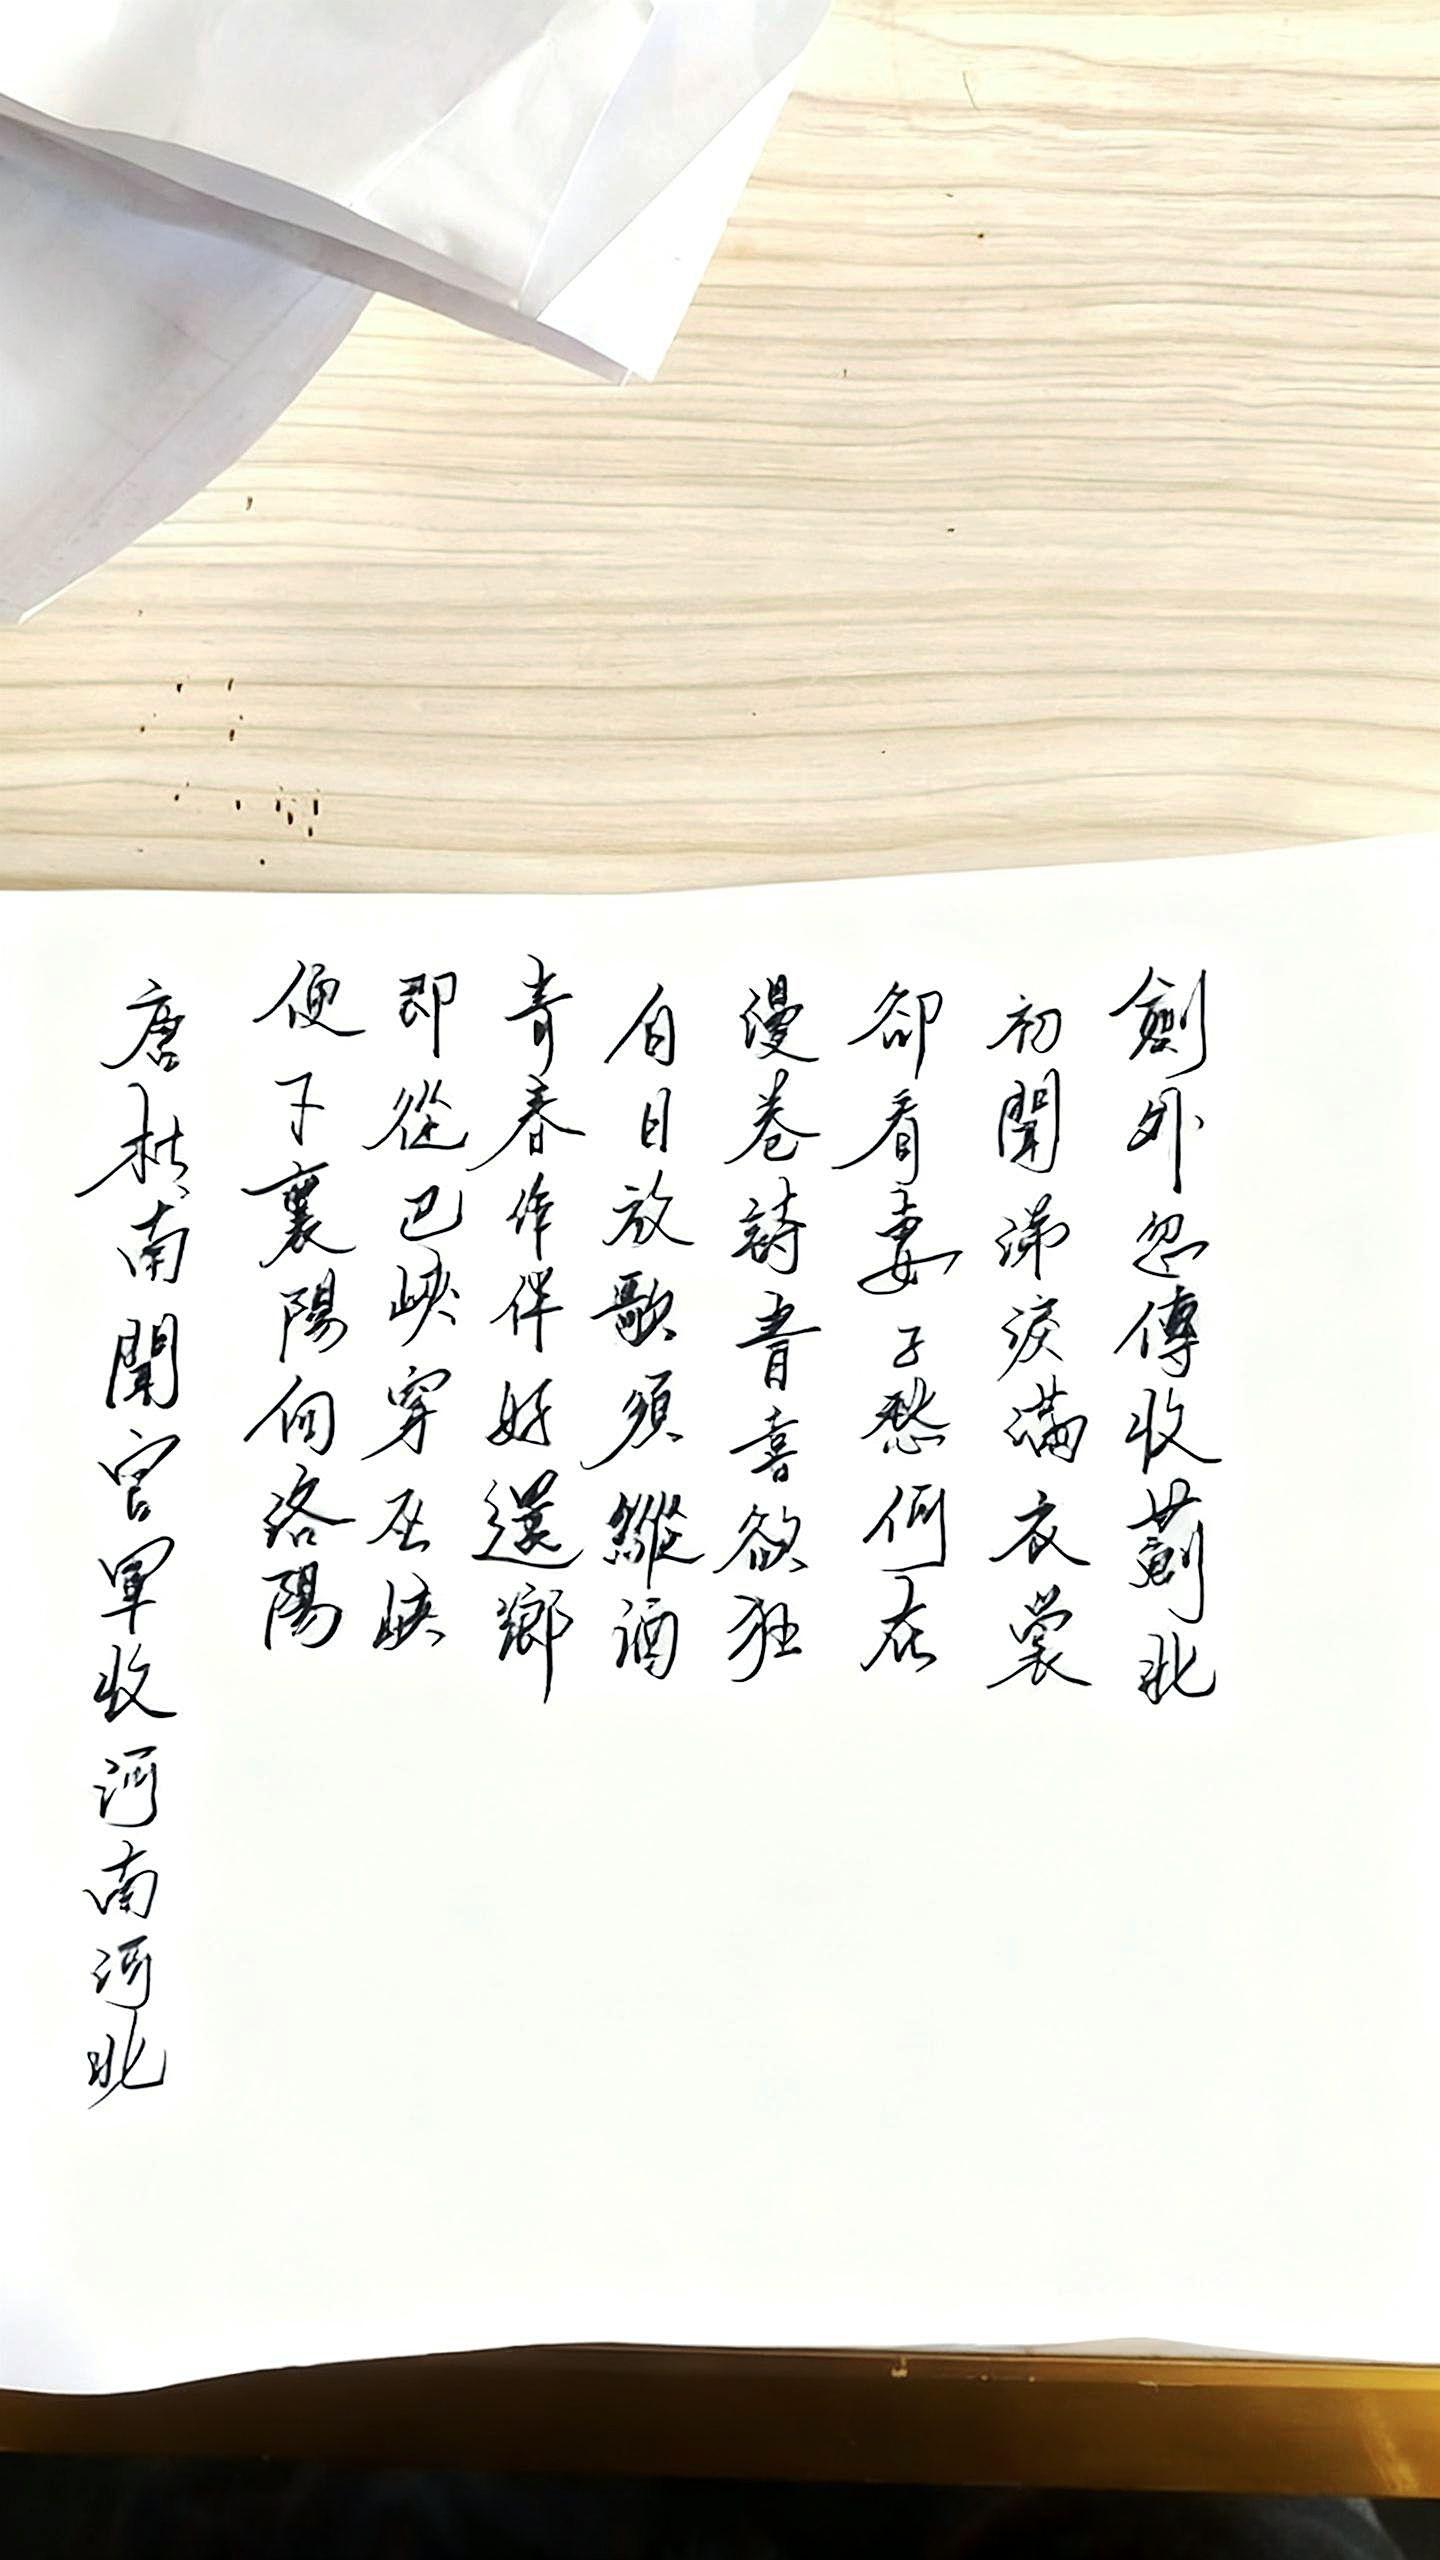 劍外忽傳收薊北
初聞涕淚滿衣裳
卻看妻子愁何在
漫卷詩書喜欲狂
白日放歌須縱酒
青春作伴好還鄉
即從巴峽穿巫峽
便下襄陽向洛陽
唐杜甫聞官軍收河南河北